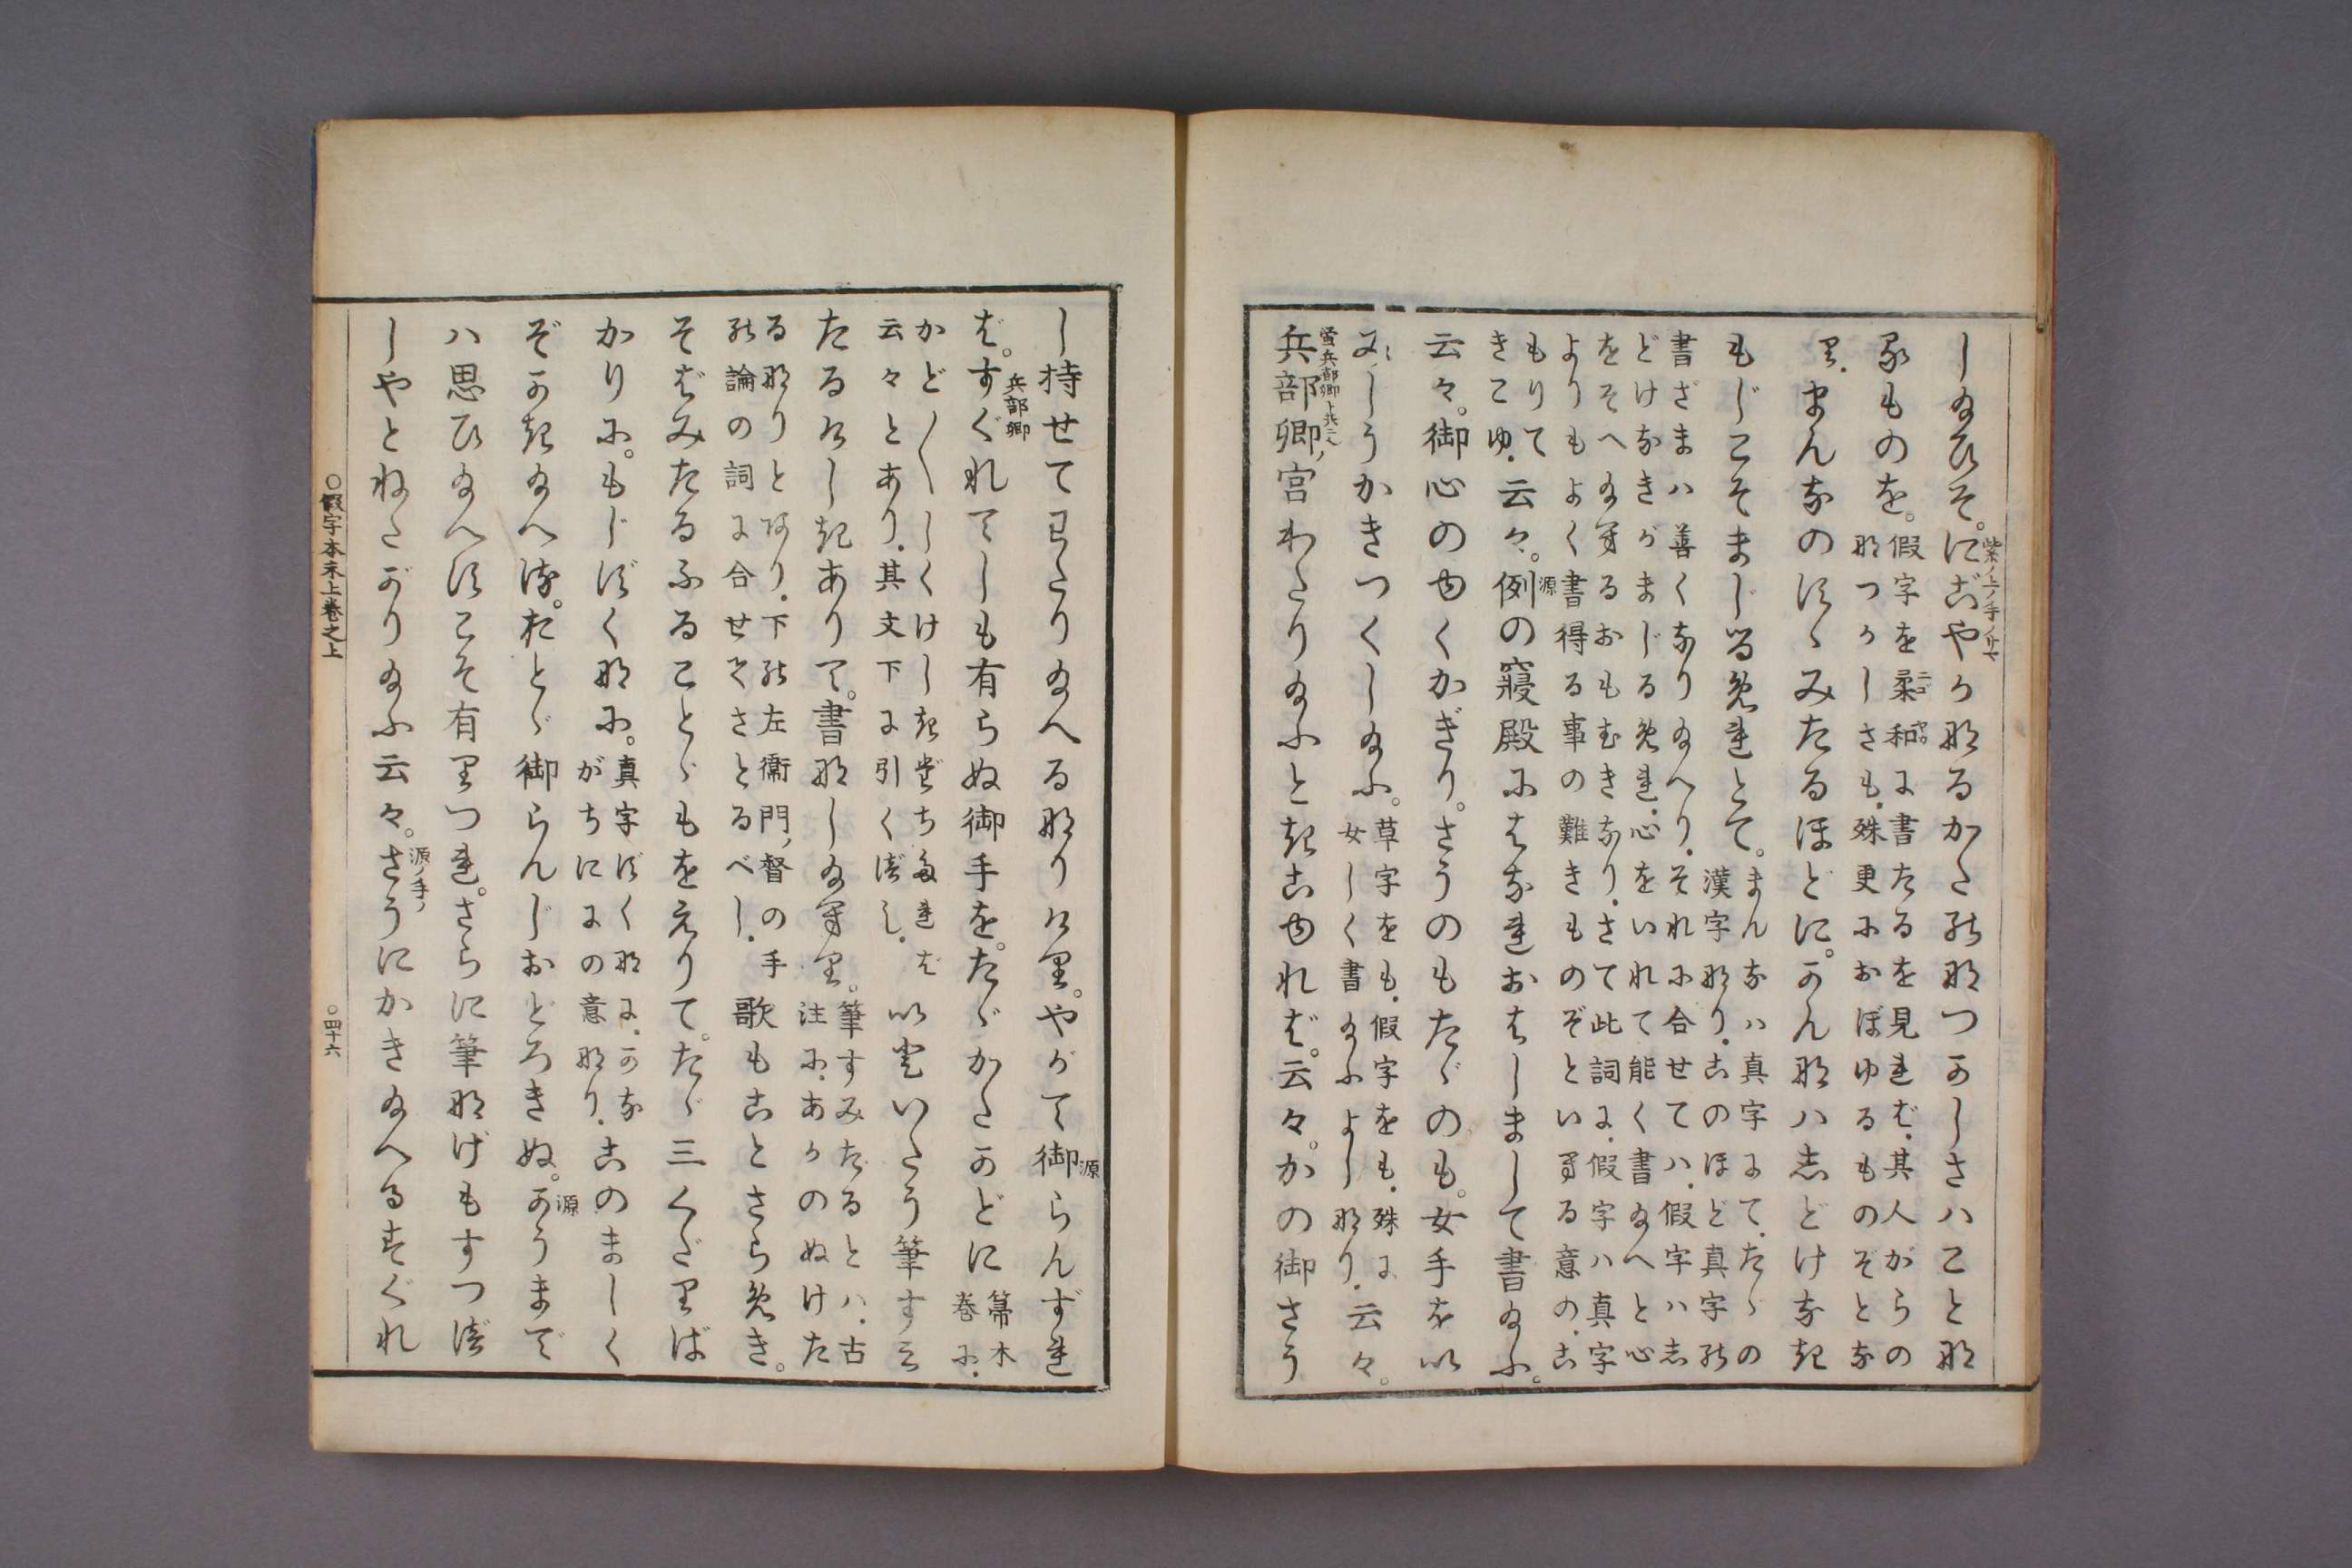 し給ひそ。にこやかなるかたのなつかしさハこと紫ノ上ノ手ノ介な
るものを。假字を柔和に書たるを見れば、其人がらの
なつかしさも、殊更におぼゆるものぞとな
り。まんなのすゝみたるほどに。かんなハ志どけなき
もじこそまじるめれとて。まんなハ真字にて、たゝの
漢字なり。このほど真字の
書ざまハ善くなり給へり。それに合せてハ、假字ハ志
どけなきがまじるめれ、心をいれて能く書給へと心
をそへ給へるおもむきなり。さて此詞に、假字ハ真字
よりもよく書得る事の難きものぞといへる意の、こ
もりて
きこゆ。云々。例の寢殿にはなれおはしまして書給ふ。
源
云々。御心のゆくかぎり。さうのもたゞのも。女手をい
みじうかきつくし給ふ。草字をも、假字をも、殊に
女しく書給ふよしなり。云々。
兵部卿ノ宮わたり給ふときこゆれば。云々。かの御さう
螢兵部卿ト共ニ人
し持せてわたり給へるなりけり。やがて御らんずれ
源
ば。すぐれてしも有らぬ御手を。たゞかたかどに帚木
巻に、
兵部卿
かど〳〵しくけしきだちたれば
云々とあり。其文下に引くべし。いといたう筆すミ
たるけしきありて。書なし給へり。筆すみたるとハ、古
注に、あかのぬけた
るなりとあり。下の左衞門ノ督の手
の論の詞に合せてさとるべし。歌もことさらめき。
そばみたるふることゞもをえりて。たゞ三くだりば
かりに。もじずくなに。真字ずくなに、かな
がちににの意なり。このましく
ぞかき給へる。おとゞ御らんじおどろきぬ。かうまで
源
ハ思ひ給へずこそ有りつれ。さらに筆なげもすつべ
しやとねたがり給ふ云々。さうにかき給へるすぐれ
源ノ手ノ
○假字本末上巻之上
○四十六